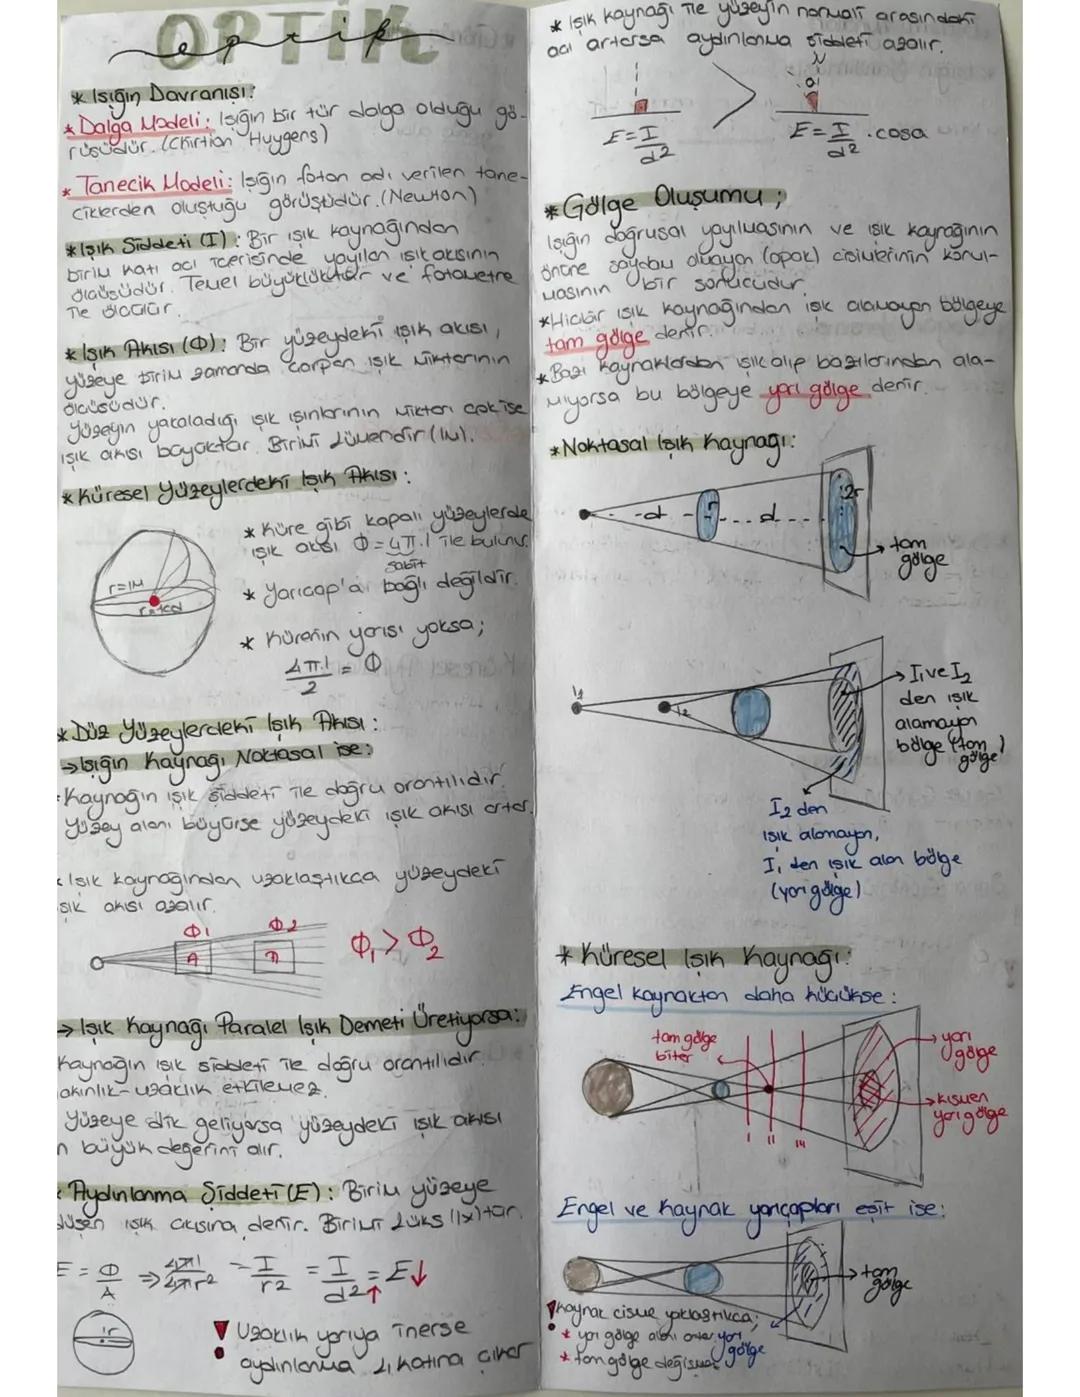 OPTİK
optik
* Işığın Davranışı:
* Dalga Modeli: Işığın bir tür dalga olduğu gö-
rüşüdür. (Chirtian Huygens)
* Tanecik Modeli: Işığın foton adı verilen tane-
ciklerden oluştuğu görüşüdür. (Newton)
* Işık Şiddeti (I): Bir ışık kaynağından
birim katı açı içerisinde yayılan ışık akısının
ölçüsüdür. Temel büyüklüktür ve fotometre
ile ölçülür.
* Işık Akısı (Φ): Bir yüzeydeki ışık akısı,
yüzeye birim zamanda çarpan ışık miktarının
ölçüsüdür.
Yüzeyin yakaladığı ışık ışınlarının miktarı çok ise
ışık akısı büyüktür. Birimi Lümendir (lm).
* Küresel Yüzeylerdeki Işık Akısı:
* Küre gibi kapalı yüzeylerde
ışık akısı Φ=4π.I ile bulunur.
sabit
r=1m
* Yarıçap'a bağlı değildir.
* Kürenin yarısı yoksa;
4π.I / 2 = Φ
* Düz Yüzeylerdeki Işık Akısı:
→ Işığın Kaynağı Noktasal ise:
Kaynağın ışık şiddeti ile doğru orantılıdır.
Yüzey alanı büyürse yüzeydeki ışık akısı artar.
* Işık kaynağından uzaklaştıkça yüzeydeki
ışık akısı azalır.
Φ1 Φ2
A A
Φ1 > Φ2
→ Işık Kaynağı Paralel Işık Demeti Üretiyorsa:
Kaynağın ışık şiddeti ile doğru orantılıdır.
akınlık-uzaklık etkilemez.
Yüzeye dik geliyorsa yüzeydeki ışık akısı
n büyük değerini alır.
* Aydınlanma Şiddeti (E): Birim yüzeye
düşen ışık akısına denir. Birimi Lüks (lx) tür.
E = Φ/A ⇒ 4πI/4πr² = I/r² = I/d²↑ = E↓
r
! Uzaklık yarıya inerse
aydınlanma 4 katına çıkar
* Işık kaynağı ile yüzeyin normali arasındaki
açı artarsa aydınlanma şiddeti azalır.
N
α
>
E = I/d²
E = I/d² . cosα
* Gölge Oluşumu;
Işığın doğrusal yayılmasının ve ışık kaynağının
önüne saydam olmayan (opak) cisimlerinin konul-
masının bir sonucudur.
* Hiçbir ışık kaynağından ışık alamayan bölgeye
tam gölge denir.
* Bazı kaynaklardan ışık alıp bazılarından ala-
mıyorsa bu bölgeye yarı gölge denir.
* Noktasal Işık Kaynağı:
d r d 2r
tam
gölge
I1
I2
I1 ve I2
den ışık
alamayan
bölge (tam
gölge)
I2 den
ışık alamayan,
I1 den ışık alan bölge
(yarı gölge)
* Küresel Işık Kaynağı:
Engel kaynaktan daha küçükse:
tam gölge
biter
yarı
gölge
kısmen
yarı gölge
I II III
Engel ve kaynak yarıçapları eşit ise:
tam
gölge
! Kaynak cisme yaklaştıkça;
* yarı gölge alanı artar
yarı
gölge
* tam gölge değişmez